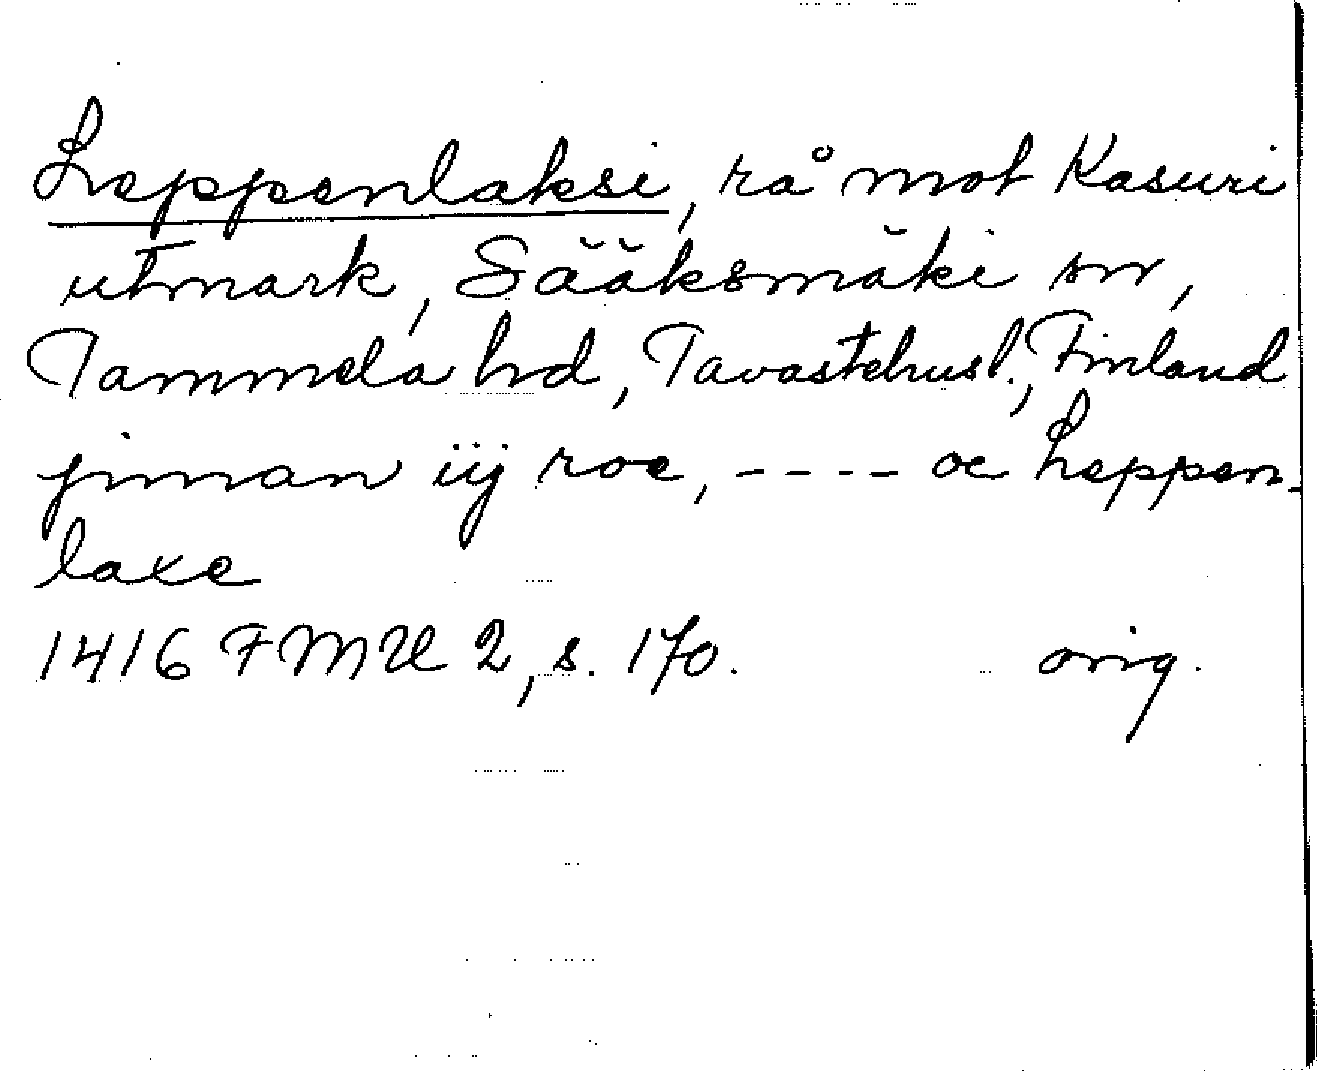 Leppenlaksi, rå mot Kasuri
utmark, Sääksmäki sn,
Tammela hd, Tavastehusl., Finland
jnnan iij roe, ---- oc Leppen-
laxe
1416 FMU 2, s. 170. orig.